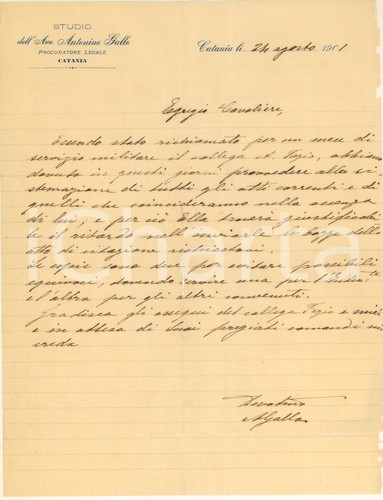 STUDIO
dell'Avv. Antonino Gallo
PROCURATORE LEGALE
CATANIA
Catania li 24 agosto 1901
Egregio Cavaliere,
Essendo stato richiamato per un mese di
servizio militare il collega avv. abbiamo
dovuto in questi giorni provvedere alla si
stemazione di tutti gli atti correnti e di
quelli che coincideranno nella assenza
di lui, e per ciò Ella troverà giustifica
to il ritardo nell'inviarle le bozze dello
atto di citazione richiestomi.
Le copie sono due per evitare possibili
equivoci, dovendo servire una per l'
e l'altra per gli altri convenuti.
Gradisca gli ossequi del collega e miei
e in attesa di Suoi pregiati comandi mi
creda
Devotissimo
AGallo